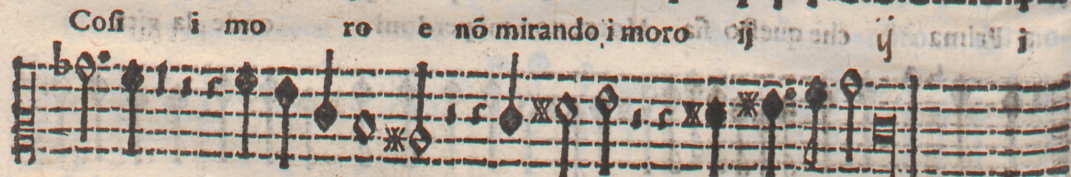 Cosi i mo ro e nõ mirando i moro ij ij i